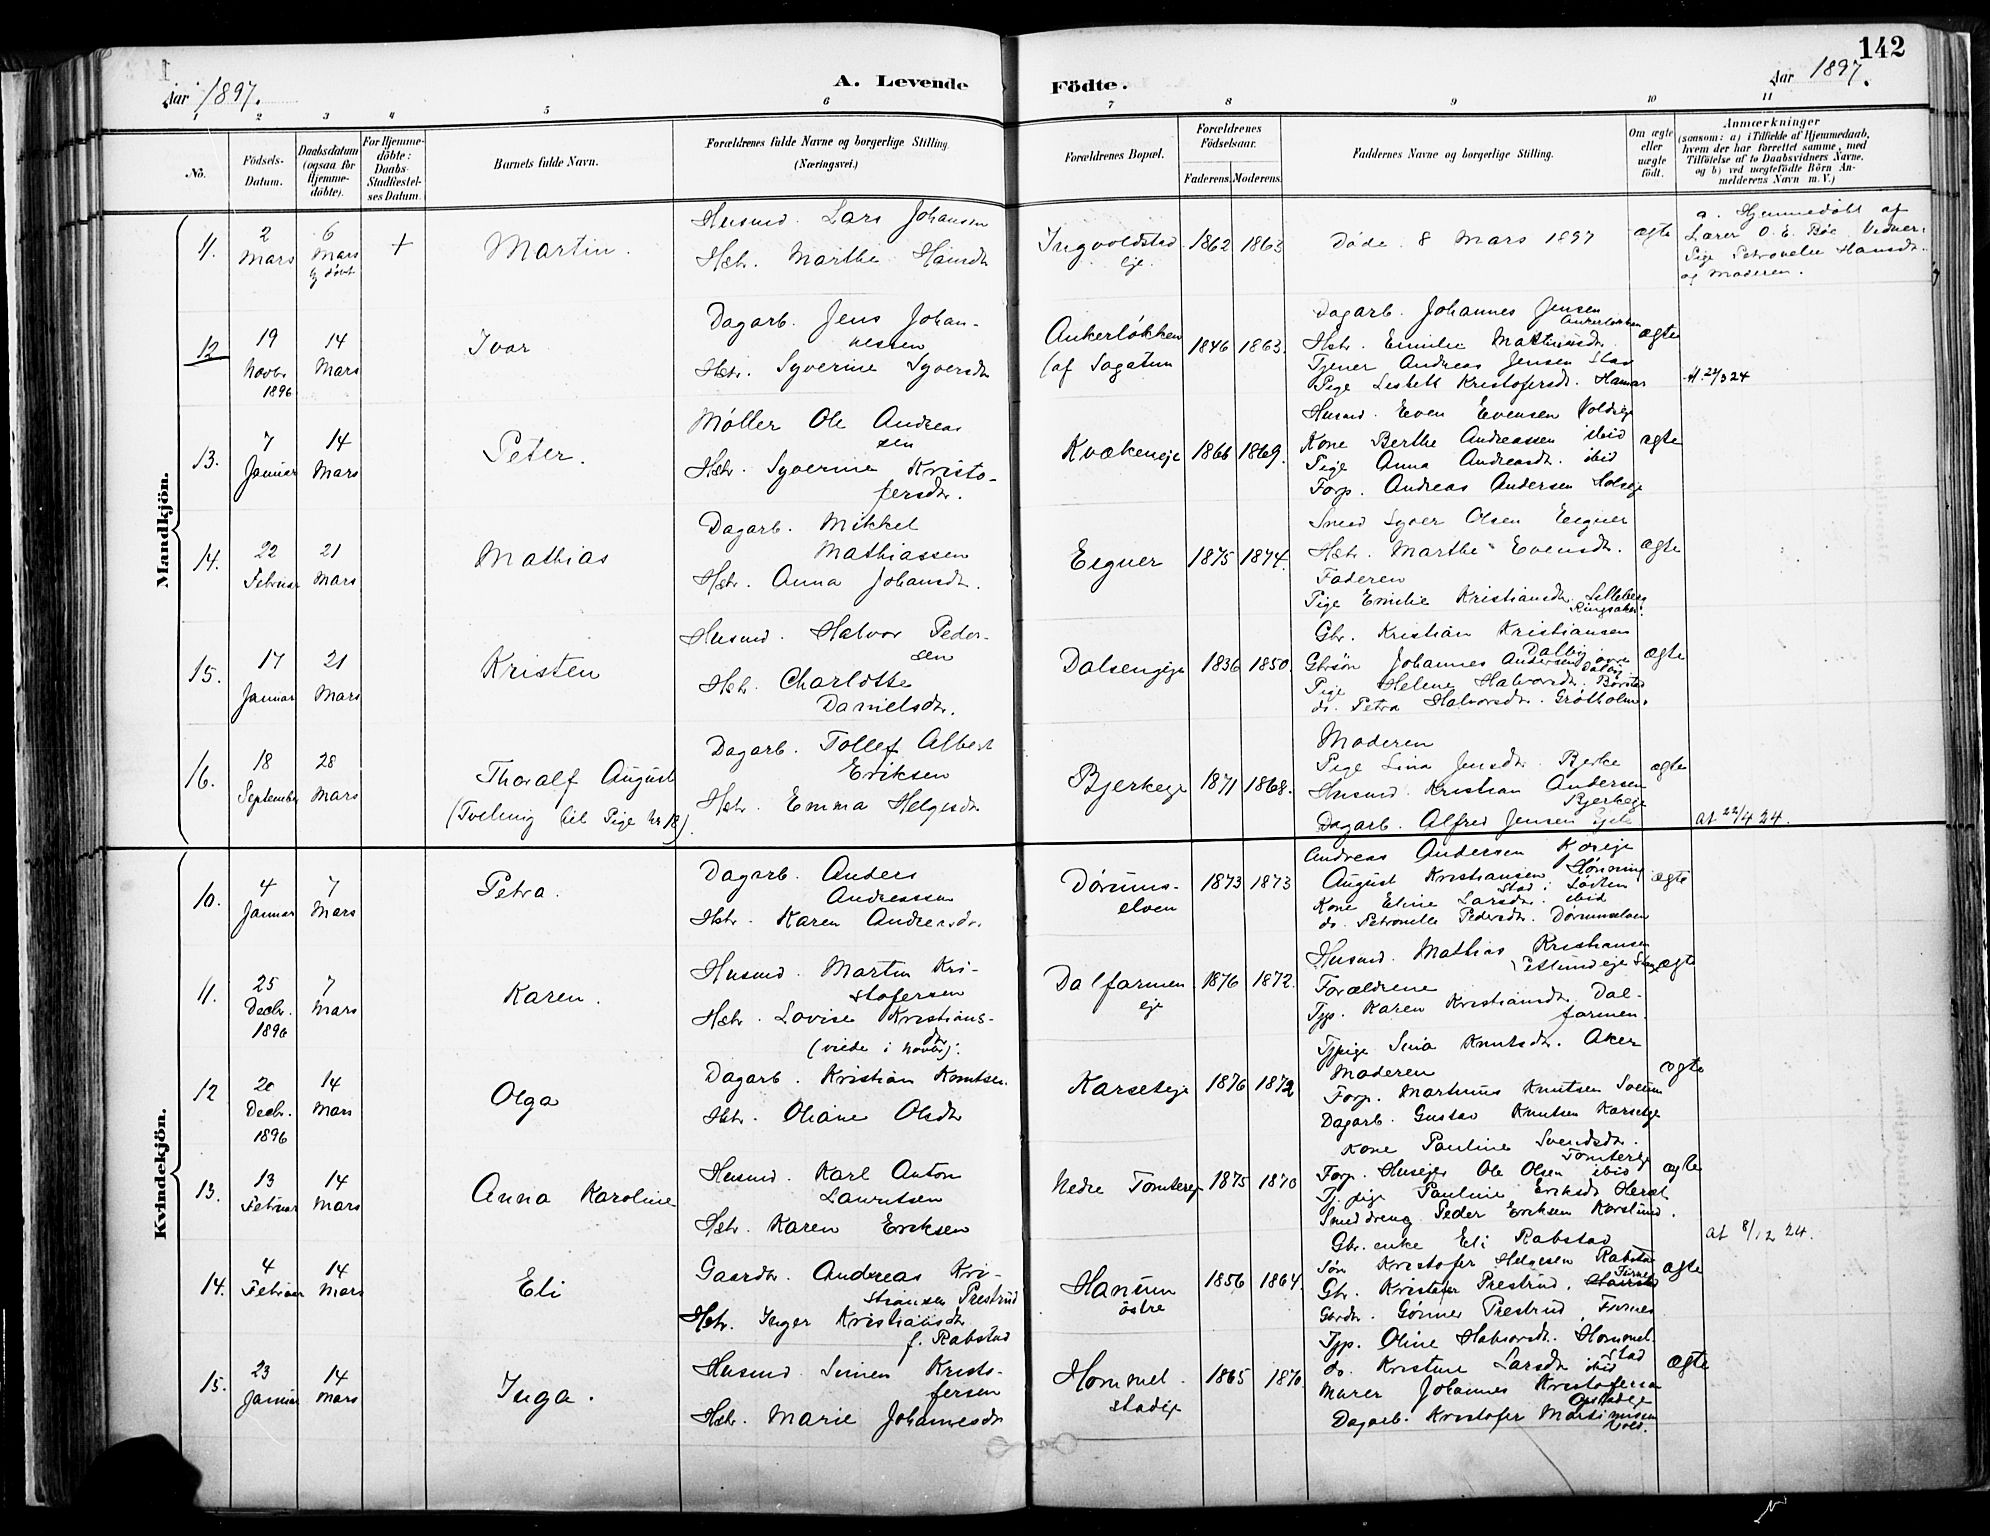 142
Aar 1897.
A. Levende Födte.
Aar 1897.
1 2 3 4 5 6 7 8 9 10 11
No.
Födsels-
Datum.
Daabsdatum
(ogsaa för
Hjemme-
döbte).
For Hjemme-
döbte:
Daabs-
Stadfæstel-
ses Datum.
Barnets fulde Navn.
Forældrenes fulde Navne og borgerlige Stilling
(Næringsvei.)
Forældrenes Bopæl.
Forældrenes
Födselsaar.
Faderens. Moderens.
Faddernes Navne og borgerlige Stilling.
Om ægte
eller
uægte
födt.
Anmærkninger
(saasom: a) i Tilfælde af Hjemmedaab,
hvem der har forrettet samme, med
Tilföielse af to Daabsvidners Navne,
og b) ved uægtefödte Börn An-
melderens Navn m. V.)
Mandkjön.
11.
2
Mars
6
Mars
hj. døbt
+
Martin.
Husmd. Lars Johansen
Hstr. Marthe Hansdtr
Ingvoldstad
eje.
1862 1863
Døde 8 Mars 1897
ægte
a. Hjemmedøbt af
Lærer O. E. Bøe. Vidner:
Pige Petronelle Hansdtr.
og Moderen.
12
19
Novbr
1896
14
Mars
Ivar
Dagarb. Jens Johan-
nessen
Hstr. Syverine Syversdtr
Ankerløkken
(af Sagatun
1846 1863.
Dagarb. Johannes Jensen
Ankerløkken
Hstr. Emilie Mathiasdtr.
Tjener Andreas Jensen
Pige Lisbeth Kristofersdtr. Hamar
ægte
At. 24/3 24
13.
7
Januar
14
Mars
Peter.
Møller Ole Andreas
sen
Hstr. Syverine Kristo-
fersdtr.
Kvækeneje
1866 1869.
Husmd. Even Evensen Voldseje
Kone Berthe Andreassen ibid
Pige Anna Andreasdtr. ibid
Forp. Andreas Andersen
ægte
14.
22
Februar
21
Mars
Mathias
Dagarb. Mikkel
Mathiassen
Hstr. Anna Johansdtr.
Eegner
1875 1874.
Smed Syver Olsen Eegner
Hstr. Marthe Evensdtr.
Faderen
Pige Emilie Kristiansdtr. Lilleberg
Ringsaker.
ægte
15.
17
Januar
21
Mars
Kristen
Husmd. Halvor Peder-
sen
Hstr. Charlotte
Danielsdtr.
Dalsengeje
1836 1850.
Gbr. Kristian Kristiansen
Dalby
Gbrsøn Johannes Andersen
Pige Helene Halvorsdtr. Børstad
do. Petra Halvorsdtr. Grøtholm.
ægte
16.
18
September
28
Mars
Thoralf August
(Tvilling til Pige Nr 18).
Dagarb. Tollef Albert
Eriksen
Hstr. Emma Helgesdtr
Bjerkeeje
1871 1868.
Moderen
Pige Lina Jensdtr. Bjerke
Husmd. Kristian Andersen
Bjerkeeje
Dagarb. Alfred Jensen
ægte
At 22/4 24.
Kvindekjön.
10.
4
Januar
7
Mars
Petra.
Dagarb. Anders
Andreassen
Hstr. Karen Andreasdtr.
Dørums-
elven
1873 1873
Andreas Andersen
August Kristiansen
stad i Løiten
Kone Eline Larsdtr. ibid
do. Petronelle Pedersdtr. Dørumselven
ægte
11.
25
Decbr.
1896
7
Mars
Karen.
Husmd. Martin Kri-
stofersen
Hstr. Lovise Kristians-
dtr
(viede i Novbr).
Dalfarmen
eje
1876 1872.
Husmd. Mathias Kristiansen
Forældrene
Tjp. Karen Kristiansdtr. Dal-
farmen.
ægte
12
20
Decbr.
1896
14
Mars
Olga
Dagarb. Kristian Knutsen.
Hstr. Oliane Olsdtr
Karseteje
1876 1872
Tjpige Lina Knutsdtr. Aker
Moderen
Forp. Martinus Knutsen
Dagarb. Gustav Knutsen Karseteje
ægte
13.
13
Februar
14
Mars
Anna Karoline
Husmd. Karl Anton
Lauritsen
Hstr. Karen Eriksen
Nedre Tomtereje
1875 1870
Kone Pauline Svendsdtr.
Tomtereje
Forp. Husejer Ole Olsen ibid
Tj. pige Pauline Eriksdtr
Smeddreng Peder Eriksen Korslund.
ægte
At 8/12 24.
14.
4
Februar
14
Mars
Eli
Gaardbr. Andreas Kri-
stiansen Prestrud
Hstr. Inger Kristiansdtr
f. Rabstad
Hanum
østre
1856 1864
Gbr. enke Eli Rabstad
Søn Kristofer Helgesen Rabstad
Gbr. Kristofer Prestrud. Furnes
Gbrdtr. Gønner Prestrud. Furnes
ægte
15.
23
Januar
14
Mars
Inga.
Husmd. Simen Kristo-
fersen
Hstr. Marie Johannesdtr
Hommel-
stadeje
1865 1870.
Tjp. Oline Halvorsdtr. Hommel-
stad
do. Kristine Larsdtr ibid
Murer Johannes Kristofersen
Dagarb. Kristofer Martinusen
Vold.
ægte